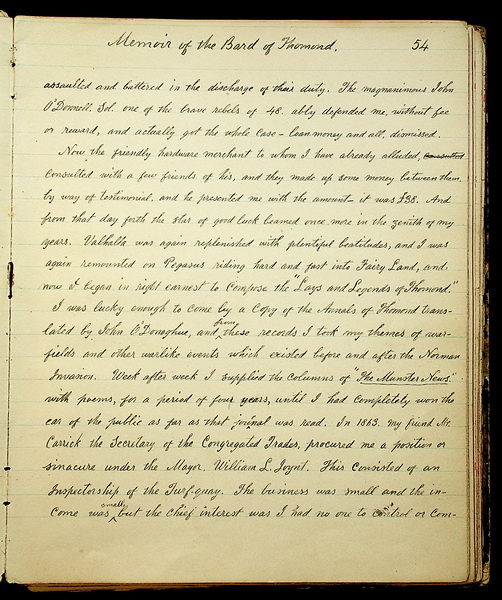 Memoir of the Bard of Thomond. 54
assaulted and battered in the discharge of their duty. The magnanimous John
O'Donnell. Sol. one of the brave rebels of 48. ably defended me, without fee
or reward, and actually got the whole case - loan money and all, dismissed.
Now the friendly hardware merchant to whom I have already alluded, consulted
Consulted with a few friends of his, and they made up some money between them,
by way of testimonial, and he presented me with the amount - it was £38. And
from that day forth the star of good luck beamed once more in the zenith of my
years. Valhalla was again replenished with plentiful beatitudes, and I was
again remounted on Pegasus riding hard and fast into Fairy Land, and
now I began in right earnest to compose the "Lays and Legends of Thomond."
I was lucky enough to come by a Copy of the Annals of Thomond trans-
lated by John O'Donoghue, and from these records I took my themes of war-
fields and other warlike events which existed before and after the Norman
Invasion. Week after week I supplied the columns of "The Munster News."
with poems, for a period of four years, until I had completely won the
ear of the public as far as that jorinal was read. In 1863. my friend Mc
Carrick the Secretary of the Congregated Trades, procured me a position or
sinacure under the Mayor. William L. Joynt. This consisted of an
Inspectorship of the Turf-quay. The business was small and the in-
come was small, but the Chief interest was I had no one to control or com-